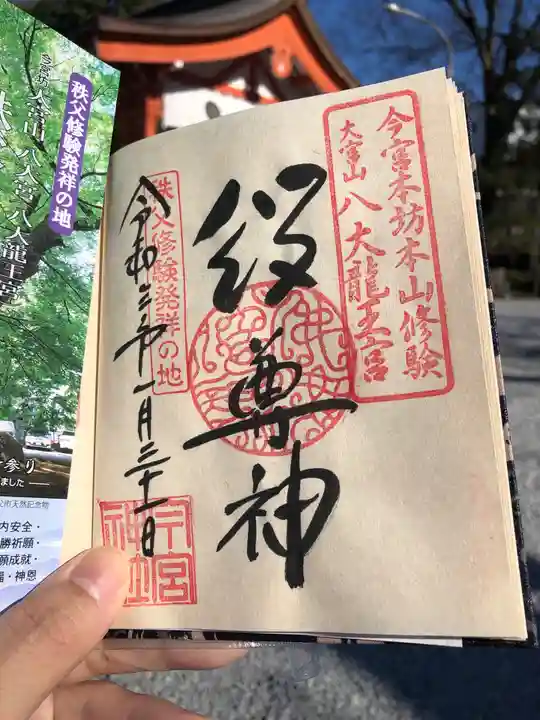 今宮本坊本山修験
大宮山 八大龍王宮
役尊神
秩父修験発祥の地
令和二年一月三十一日
今宮神社
秩父修験発祥の地
大宮山 八大宮 八大龍王宮
参り
ました
父市天然記念物
内安全・
勝祈願・
願成就・
福・神恩